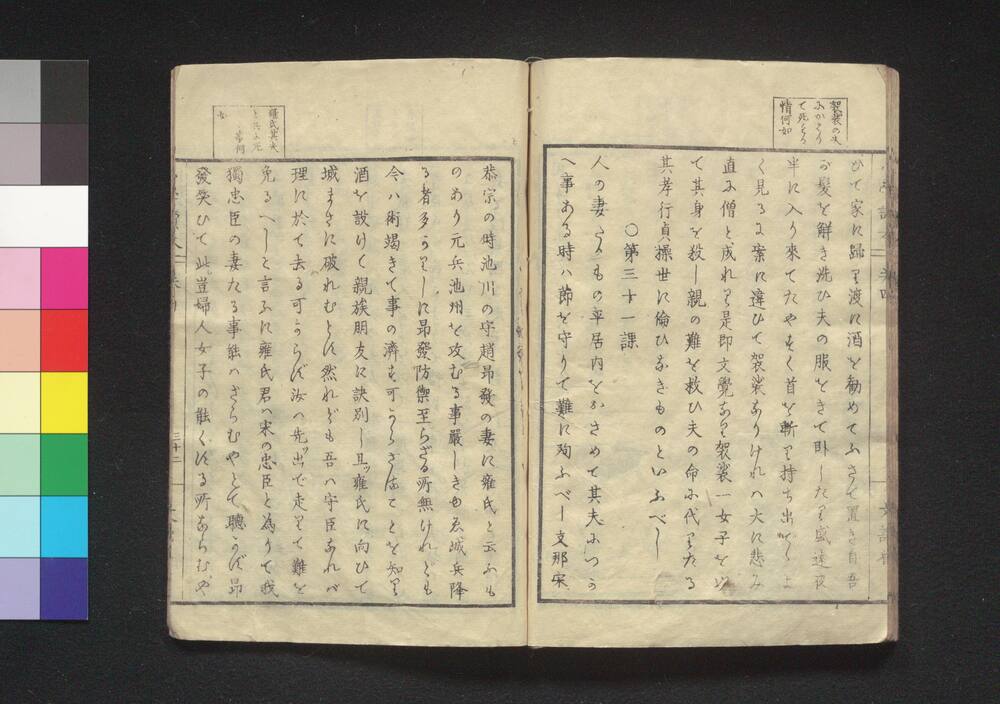 袈裟の夫
にかはり
て死する
情何如
ひて家に歸り渡に酒を勸めてふさせ置き自吾
が髮を解き洗ひ夫の服をきて臥したり盛遠夜
半に入り來てたやすく首を斬り持ち出でゝよ
く見るに案に違ひて袈裟なりければ大に悲み
直に僧と成れり是即文覺なり袈裟一女子を以
て其身を殺し親の難を救ひ夫の命に代りたる
其孝行貞操世に倫ひなきものといふべし
○第三十一課
人の妻たるもの平居内ををさめて其夫につか
へ事ある時ハ節を守りて難に殉ふべし支那宋
雍氏其夫
と共に死
恭宗の時池川の守趙昂發の妻に雍氏と云ふも
のあり元兵池州を攻むる事嚴しきゆゑ城兵降
る者多かりしに昂發防禦至らざる所無けれども
今ハ術竭きて事の濟す可からざることを知り
酒を設けて親族朋友に訣別し且ッ雍氏に向ひて
城まさに破れむとす然れども吾ハ守臣なれバ
理に於て去る可からず汝ハ先ッ出で走りて難を
免るべしと言ふに雍氏君ハ宋の忠臣と為りて我
獨忠臣の妻たる事能ハざらむやとて聽かず昂
發笑ひて此豈婦人女子の能くする所ならむや
三十二